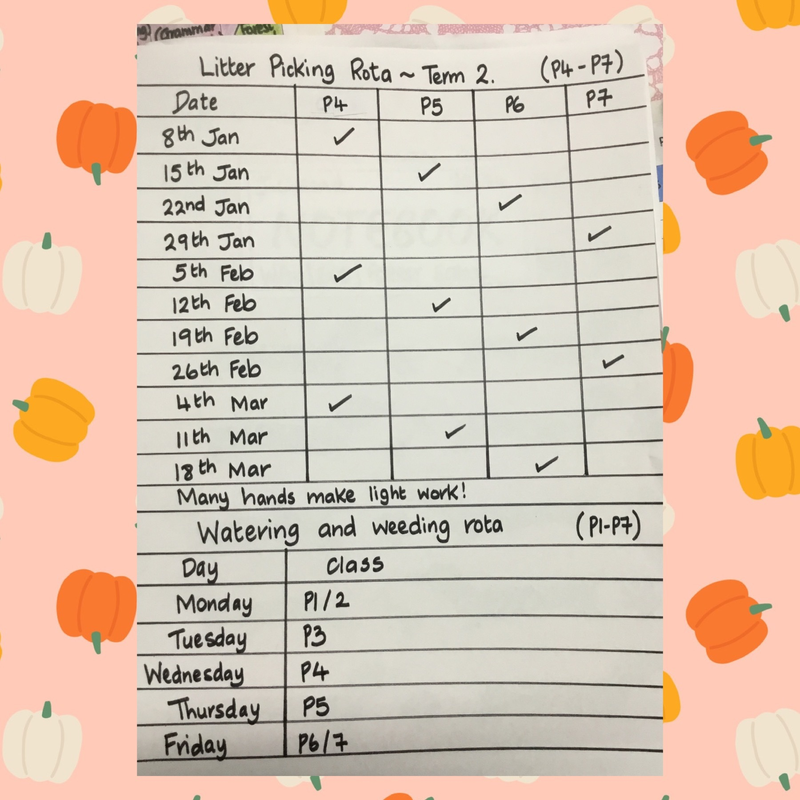 (Grammar
Forest
Litter Picking Rota ~ Term 2. (P4-P7)
Date P4 P5 P6 P7
8th Jan ✓
15th Jan ✓
22nd Jan ✓
29th Jan ✓
5th Feb ✓
12th Feb ✓
19th Feb ✓
26th Feb ✓
4th Mar ✓
11th Mar ✓
18th Mar ✓
Many hands make light work!
Watering and weeding rota (P1-P7)
Day Class
Monday P1/2
Tuesday P3
Wednesday P4
Thursday P5
Friday P6/7